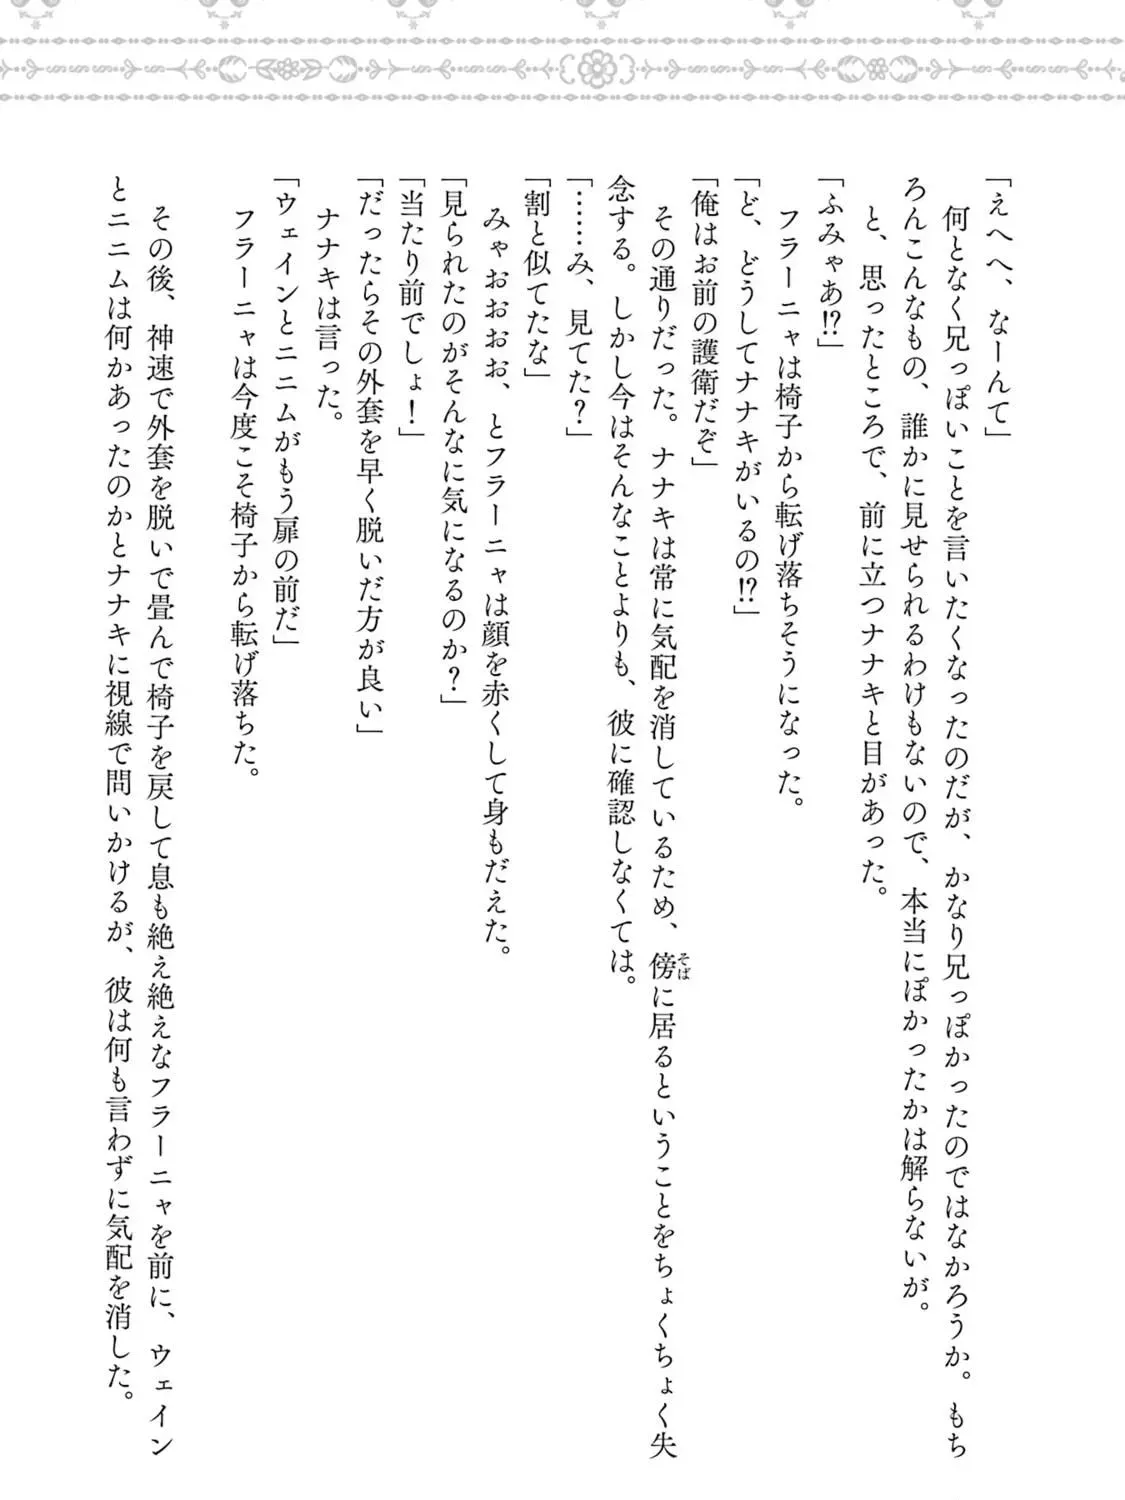 「えへへ、なーんて」
　何となく兄っぽいことを言いたくなったのだが、かなり兄っぽかったのではなかろうか。もち
ろんこんなもの、誰かに見せられるわけもないので、本当にぽかったかは解らないが。
　と、思ったところで、前に立つナナキと目があった。
「ふみゃあ!?」
　フラーニャは椅子から転げ落ちそうになった。
「ど、どうしてナナキがいるの!?」
「俺はお前の護衛だぞ」
　その通りだった。ナナキは常に気配を消しているため、傍に居るということをちょくちょく失
念する。しかし今はそんなことよりも、彼に確認しなくては。
「……み、見てた？」
「割と似てたな」
　みゃおおおお、とフラーニャは顔を赤くして身もだえた。
「見られたのがそんなに気になるのか？」
「当たり前でしょ！」
「だったらその外套を早く脱いだ方が良い」
　ナナキは言った。
「ウェインとニニムがもう扉の前だ」
　フラーニャは今度こそ椅子から転げ落ちた。
　その後、神速で外套を脱いで畳んで椅子を戻して息も絶え絶えなフラーニャを前に、ウェイン
とニニムは何かあったのかとナナキに視線で問いかけるが、彼は何も言わずに気配を消した。